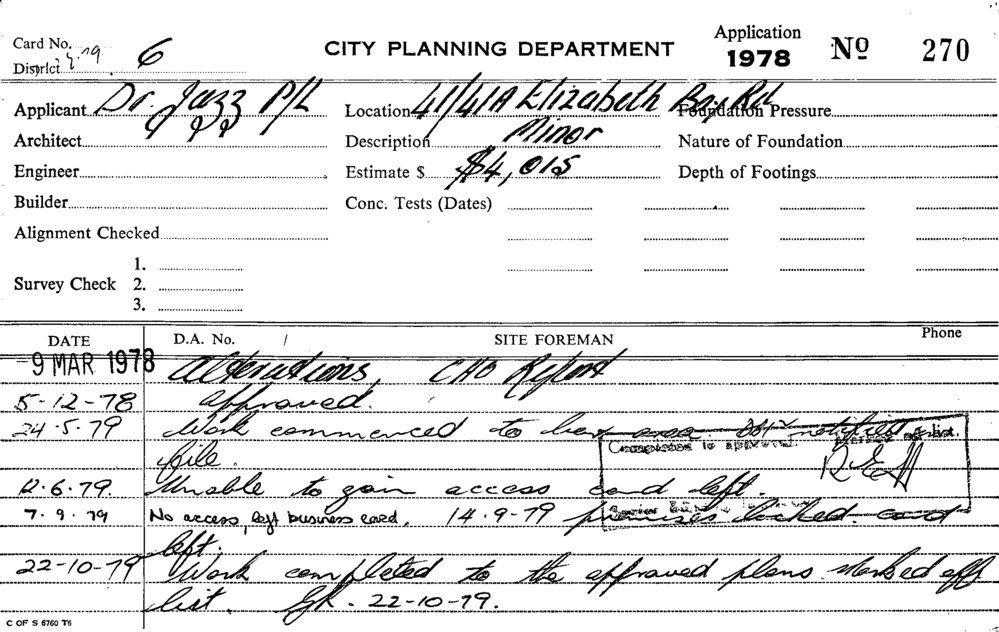 Card No.
District 6
CITY PLANNING DEPARTMENT
Application
1978 Nº 270
Applicant Dr. Jazz P/L
Location 41/41A Elizabeth Bay Rd
Foundation Pressure
Architect
Description Minor
Nature of Foundation
Engineer
Estimate $ $4,015
Depth of Footings
Builder
Conc. Tests (Dates)
Alignment Checked
Survey Check 1.
2.
3.
DATE D.A. No. / SITE FOREMAN Phone
-9 MAR 1978 Alterations, CHO Report
5-12-78 approved.
24.5.79 Work commenced to bar area. notified
file.
Completion is approval.
12.6.79. Unable to gain access card left.
7.9.79 No access, left business card. 14.9-79 premises locked. card
left.
22-10-79 Work completed to the approved plans. Marked off
list. 22-10-79.
C OF S 6760 T6